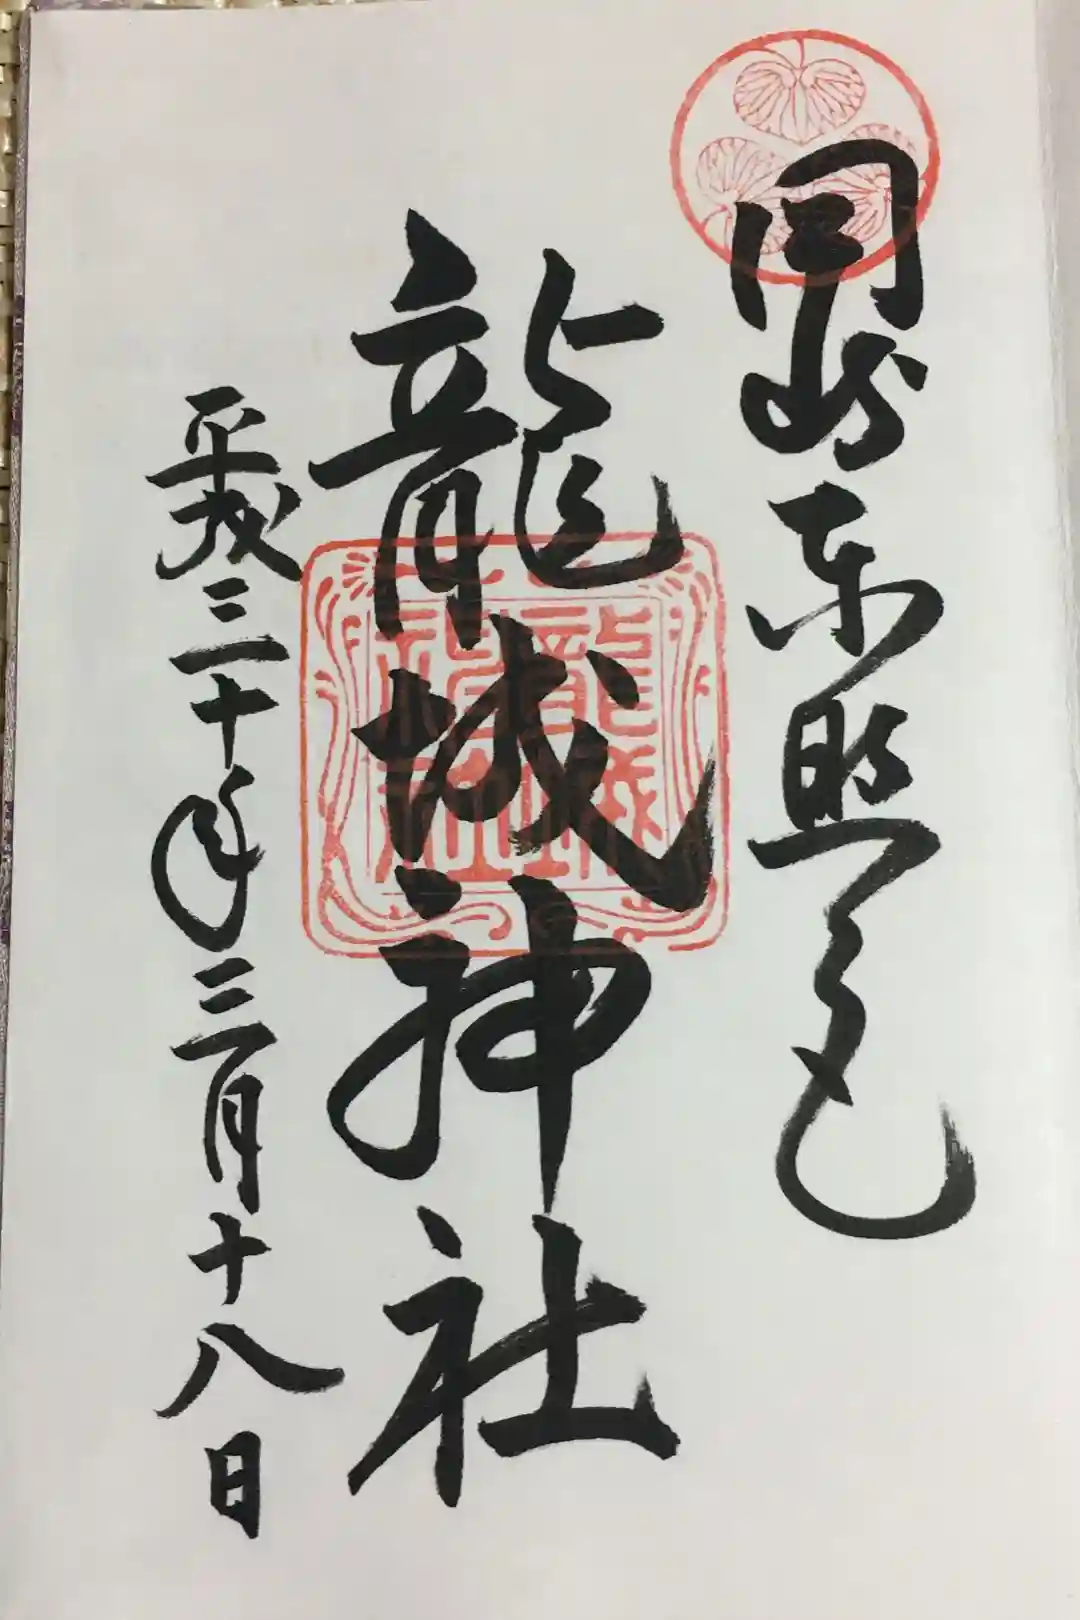 岡崎東照宮
龍城神社
平成三十年三月十八日
龍城神社